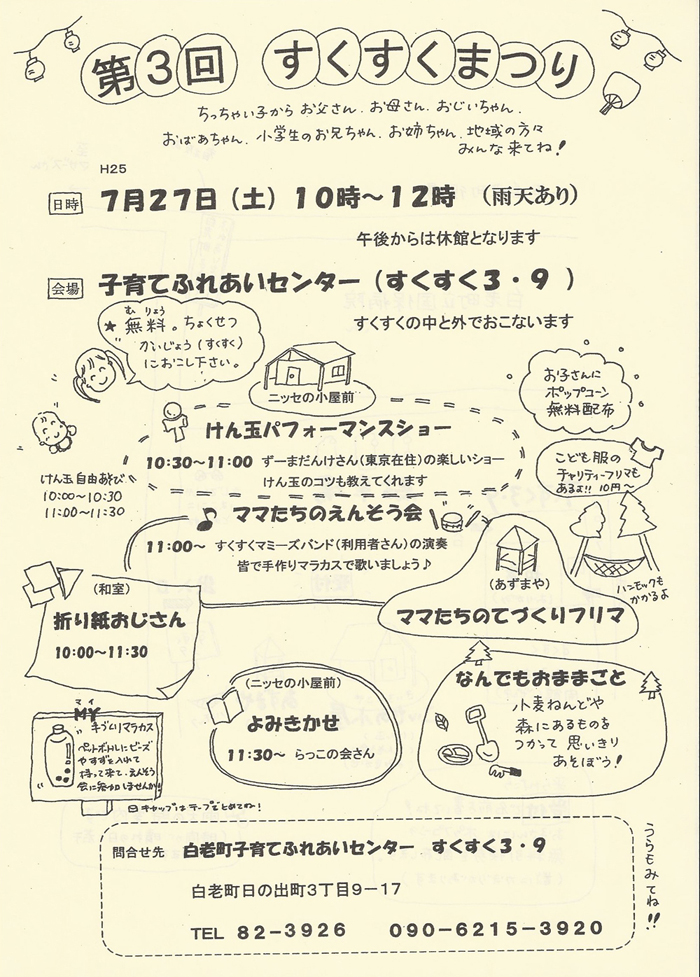 第3回 すくすくまつり
ちっちゃい子から お父さん、お母さん、おじいちゃん、
おばあちゃん、小学生のお兄ちゃん、お姉ちゃん、地域の方々
みんな来てね!
H25
日時 7月27日(土)10時～12時 (雨天あり)
午後からは休館となります
会場 子育てふれあいセンター(すくすく3・9)
すくすくの中と外でおこないます
む りょう
★無料。ちょくせつ
かいじょう(すくすく)
におこし下さい。
ニッセの小屋前
お子さんに
ポップコーン
無料配布
けん玉パフォーマンスショー
10:30～11:00 ずーまだんけさん(東京在住)の楽しいショー
けん玉のコツも教えてくれます
けん玉自由あそび
10:00～10:30
11:00～11:30
こども服の
チャリティーフリマも
あるよ!! 10円～
♪ ママたちのえんそう会
11:00～ すくすくマミーズバンド(利用者さん)の演奏
皆で手作りマラカスで歌いましょう♪
(あずまや)
ママたちのてづくりフリマ
ハンモックも
かかるよ
(和室)
折り紙おじさん
10:00～11:30
(ニッセの小屋前)
よみきかせ
11:30～ らっこの会さん
なんでもおままごと
小麦ねんどや
森にあるものを
つかって 思いきり
あそぼう!
マイ
MY
手づくりマラカス
ペットボトルにビーズ
やすずを入れて
持って来て、えんそう
会に参加しませんか!
キャップはテープでとめてね!
問合せ先 白老町子育てふれあいセンター すくすく3・9
白老町日の出町3丁目9－17
TEL 82－3926 090－6215－3920
うらもみてね!!